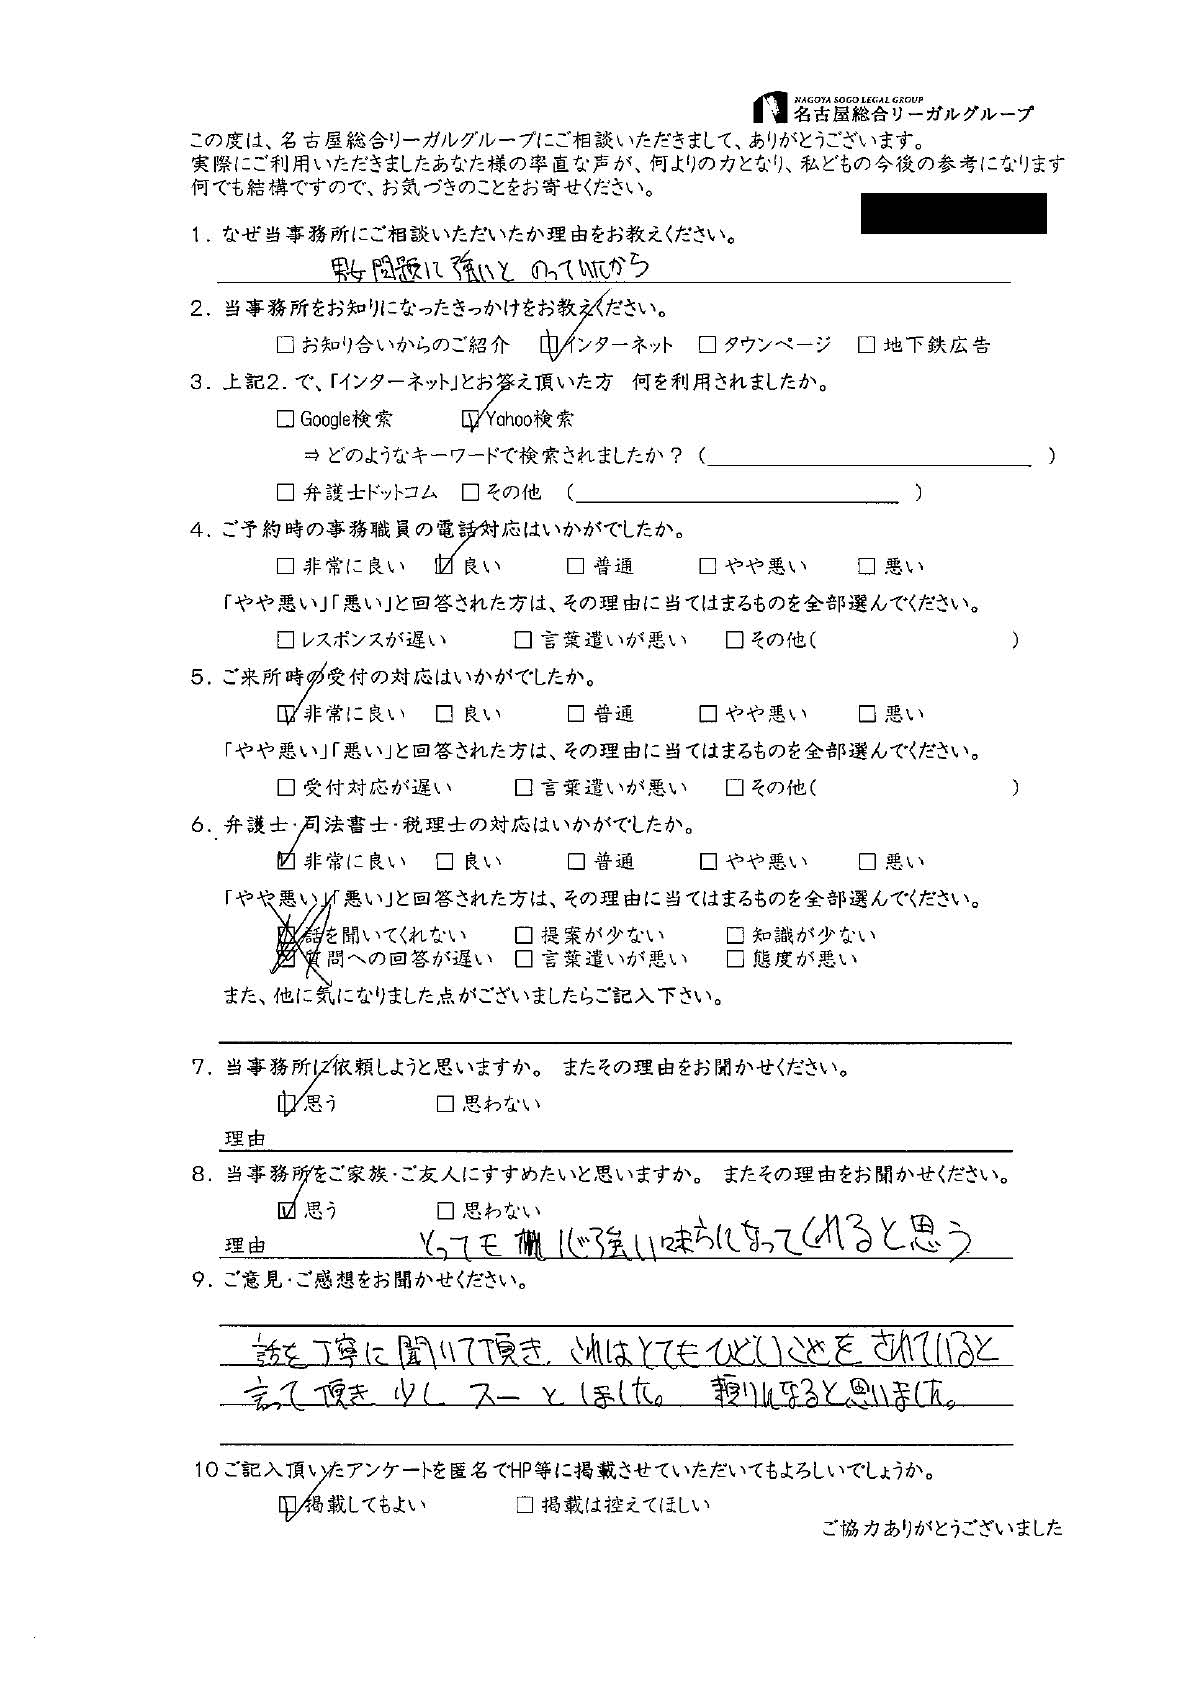 NAGOYA SOGO LEGAL GROUP
名古屋総合リーガルグループ
この度は、名古屋総合リーガルグループにご相談いただきまして、ありがとうございます。
実際にご利用いただきましたあなた様の率直な声が、何よりの力となり、私どもの今後の参考になります
何でも結構ですので、お気づきのことをお寄せください。
1. なぜ当事務所にご相談いただいたか理由をお教えください。
男女問題に強いと のっていたから
2. 当事務所をお知りになったきっかけをお教えください。
□ お知り合いからのご紹介 ☑ インターネット □ タウンページ □ 地下鉄広告
3. 上記2. で、「インターネット」とお答え頂いた方 何を利用されましたか。
□ Google検索 ☑ Yahoo検索
⇒ どのようなキーワードで検索されましたか？ ( )
□ 弁護士ドットコム □ その他 ( )
4. ご予約時の事務職員の電話対応はいかがでしたか。
□ 非常に良い ☑ 良い □ 普通 □ やや悪い □ 悪い
「やや悪い」「悪い」と回答された方は、その理由に当てはまるものを全部選んでください。
□ レスポンスが遅い □ 言葉遣いが悪い □ その他( )
5. ご来所時の受付の対応はいかがでしたか。
☑ 非常に良い □ 良い □ 普通 □ やや悪い □ 悪い
「やや悪い」「悪い」と回答された方は、その理由に当てはまるものを全部選んでください。
□ 受付対応が遅い □ 言葉遣いが悪い □ その他( )
6. 弁護士・司法書士・税理士の対応はいかがでしたか。
☑ 非常に良い □ 良い □ 普通 □ やや悪い □ 悪い
「やや悪い」「悪い」と回答された方は、その理由に当てはまるものを全部選んでください。
□ 話を聞いてくれない □ 提案が少ない □ 知識が少ない
□ 質問への回答が遅い □ 言葉遣いが悪い □ 態度が悪い
また、他に気になりました点がございましたらご記入下さい。
7. 当事務所に依頼しようと思いますか。 またその理由をお聞かせください。
☑ 思う □ 思わない
理由
8. 当事務所をご家族・ご友人にすすめたいと思いますか。 またその理由をお聞かせください。
☑ 思う □ 思わない
理由 とっても 心強い味方になってくれると思う
9. ご意見・ご感想をお聞かせください。
話を丁寧に聞いて頂き、これはとてもひどいことをされていると
言って頂き 少し スーとしました。 頼りになると思いました。
10ご記入頂いたアンケートを匿名でHP等に掲載させていただいてもよろしいでしょうか。
☑ 掲載してもよい □ 掲載は控えてほしい
ご協力ありがとうございました